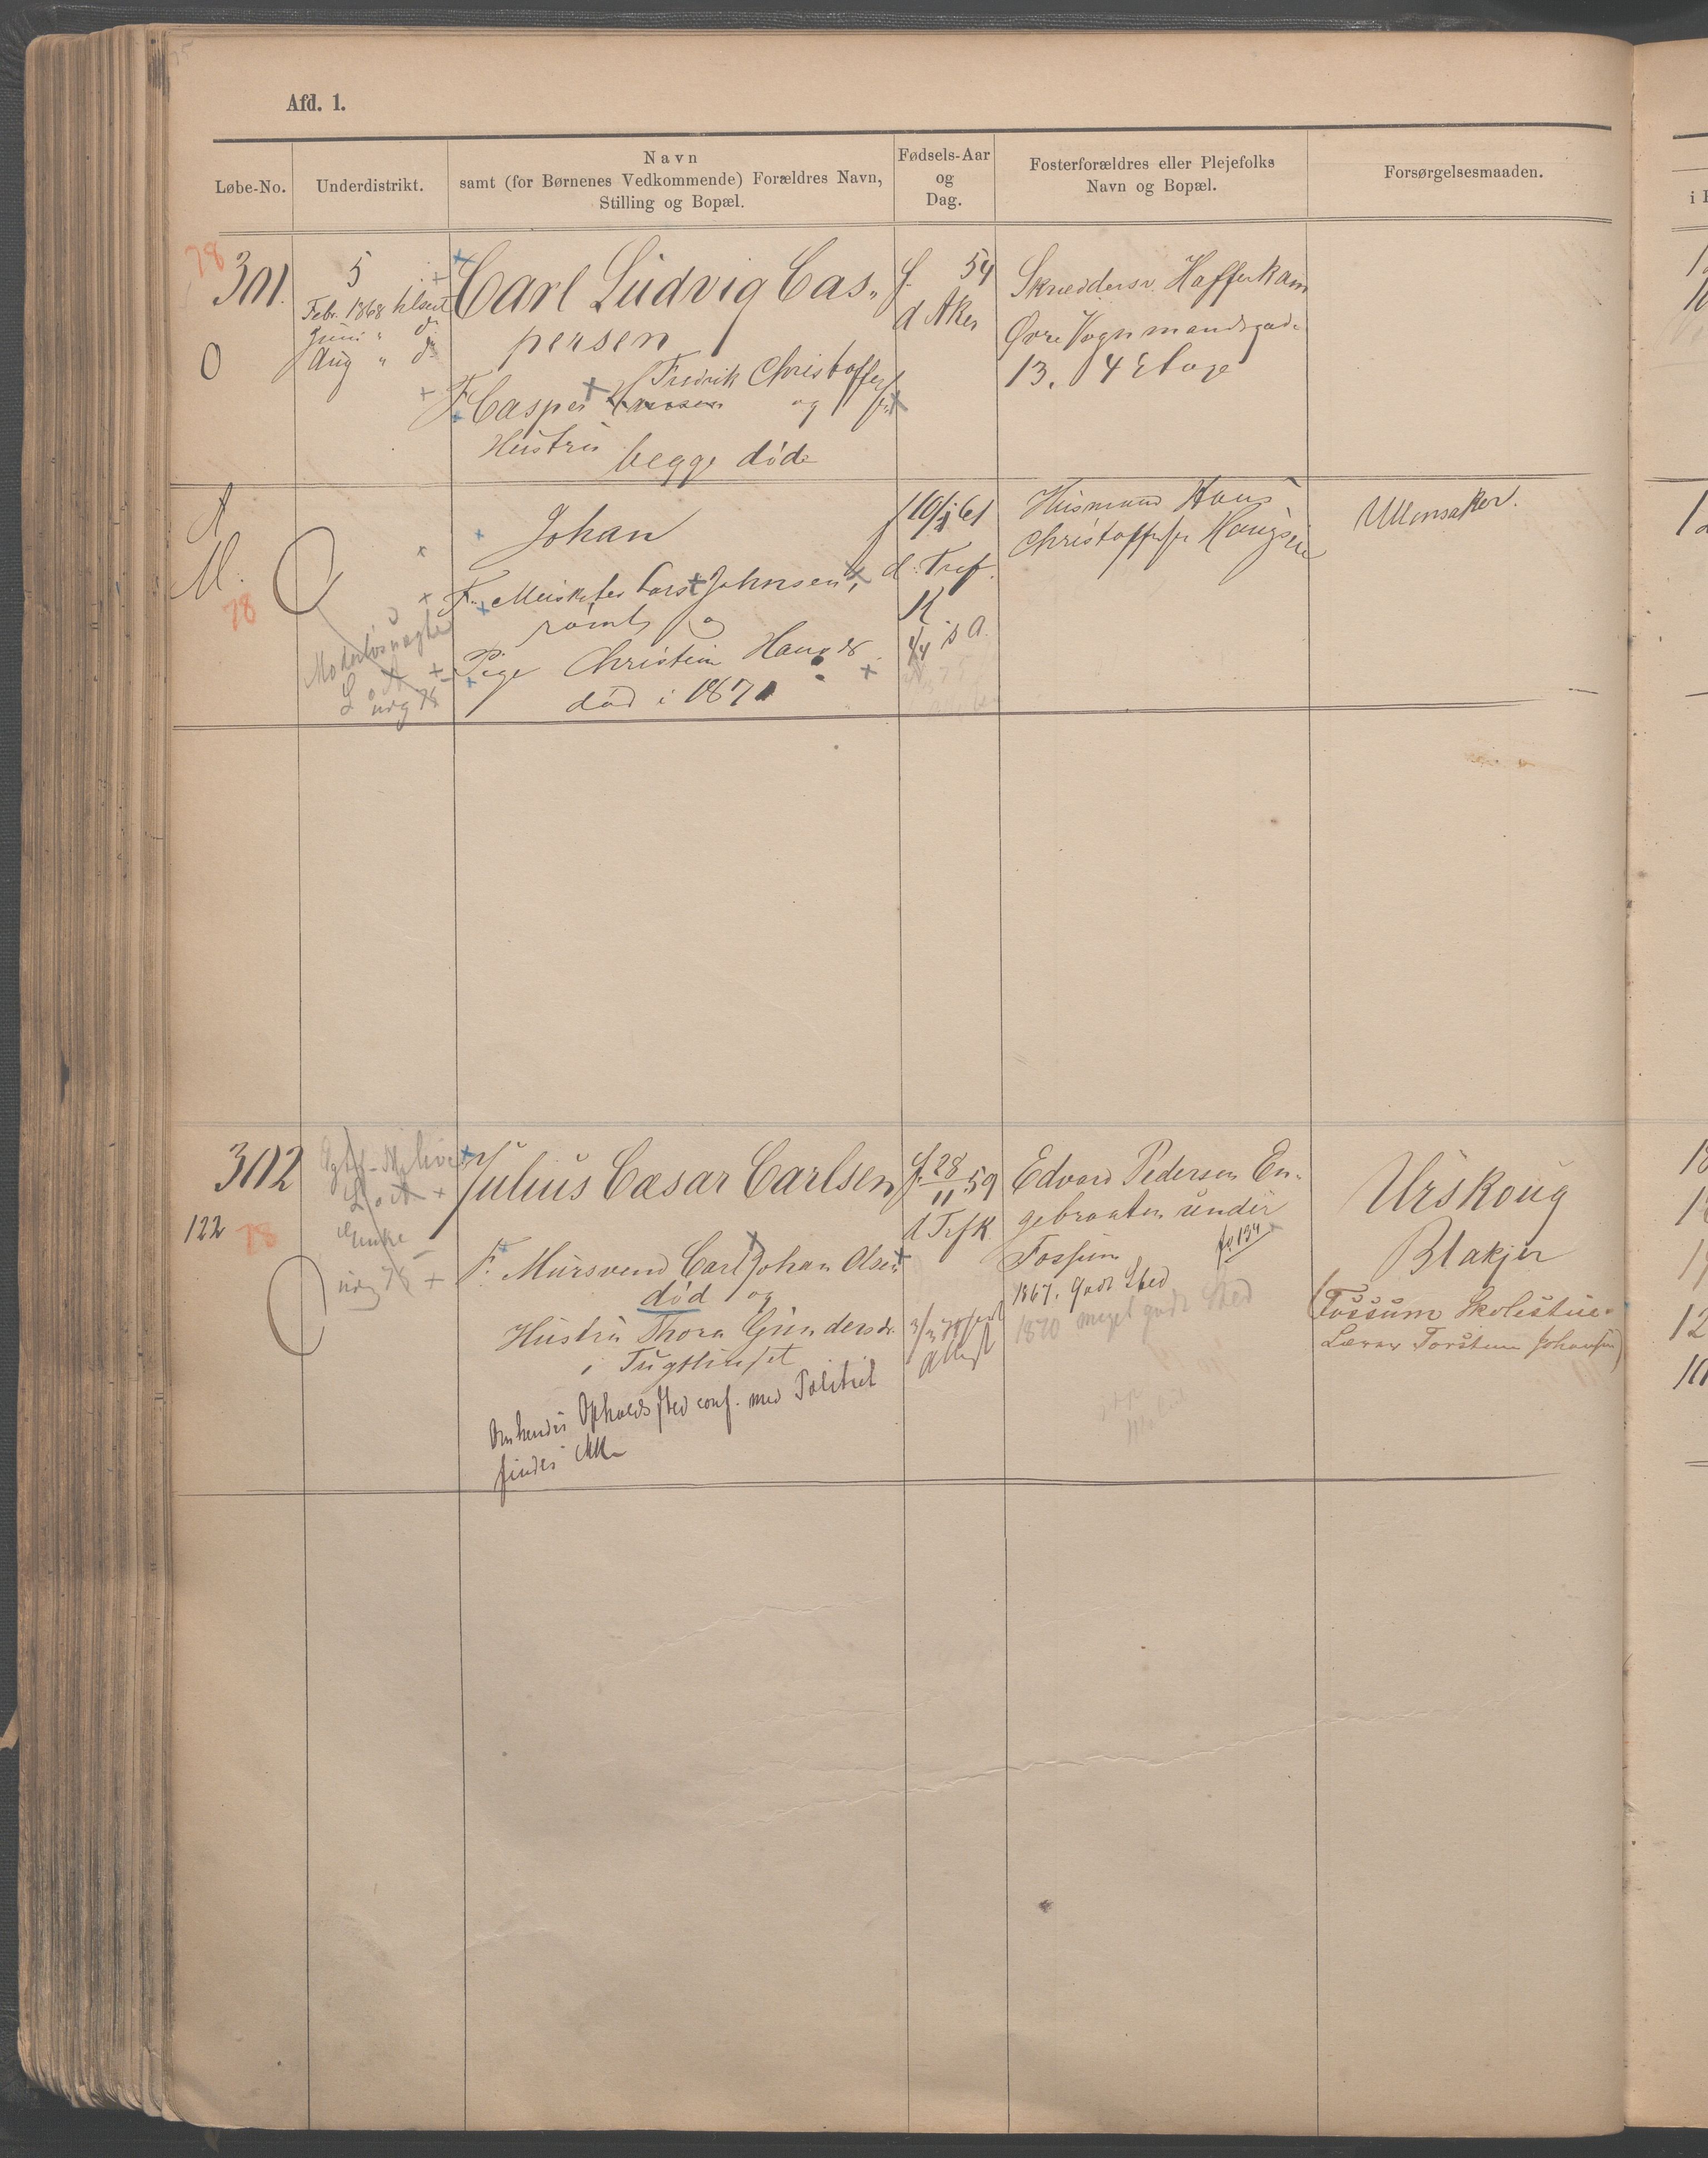 Afd. 1.
Løbe-No.
Underdistrikt.
Navn
samt (for Børnenes Vedkommende) Forældres Navn,
Stilling og Bopæl.
Fødsels-Aar
og
Dag.
Fosterforældres eller Plejefolks
Navn og Bopæl.
Forsørgelsesmaaden.
78
301.
O
5
Febr. 1868
Juni " do
Aug " do
Carl Ludvig Cas-
persen
Fredrik Christoffer
F. Casper og
Hustru begge døde
f. 54
d Aker
Skrædders. Hafferkam
Øvre Vognmandsgade
13. 4 Etage
M.
78
Moderløs uægte
L o A
udg 78
Johan
F. Musketer Lars Johnsen,
rømt, og
Pige Christine Hansdr.
død i 1871
f 10/ 61
d. Tref.
K
s A.
Husmand Hans
Christoffersen Haugsrue
Ullensaker.
302
122
78
L o A
Enke
udg 78
Julius Cæsar Carlsen
F. Mursvend Carl Johan Olsen
død og
Hustru Thora Gundersdr.
i Tugthuset
Omhendes Opholdssted conf. med Politiet
findes ikke
f. 28/11 59
d Trfk
Edvard Pedersen En-
gebraaten under
Fossum fo 134
1867. Godt Sted
1870 meget godt Sted
Urskoug
Blakjer
(Fossum Skolestue.
Lærer Torsten Johansen)